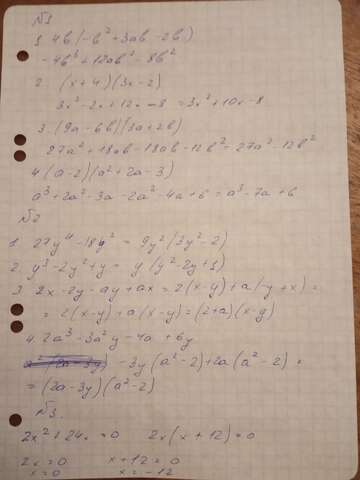 №1
1. 4b(-b² + 3ab - 2b)
-4b³ + 12ab² - 8b²
2. (x + 4)(3x - 2)
3x² - 2x + 12x - 8 = 3x² + 10x - 8
3. (9a - 6b)(3a + 2b)
27a² + 18ab - 18ab - 12b² = 27a² - 12b²
4. (a - 2)(a² + 2a - 3)
a³ + 2a² - 3a - 2a² - 4a + 6 = a³ - 7a + 6
№2
1. 27y⁴ - 18y² = 9y²(3y² - 2)
2. y³ - 2y² + y = y(y² - 2y + 1)
3. 2x - 2y - ay + ax = 2(x - y) + a(-y + x) =
= 2(x - y) + a(x - y) = (2 + a)(x - y)
4. 2a³ - 3a²y - 4a + 6y
-3y(a² - 2) + 2a(a² - 2) =
= (2a - 3y)(a² - 2)
№3.
2x² + 24x = 0 2x(x + 12) = 0
2x = 0 x + 12 = 0
x = 0 x = -12